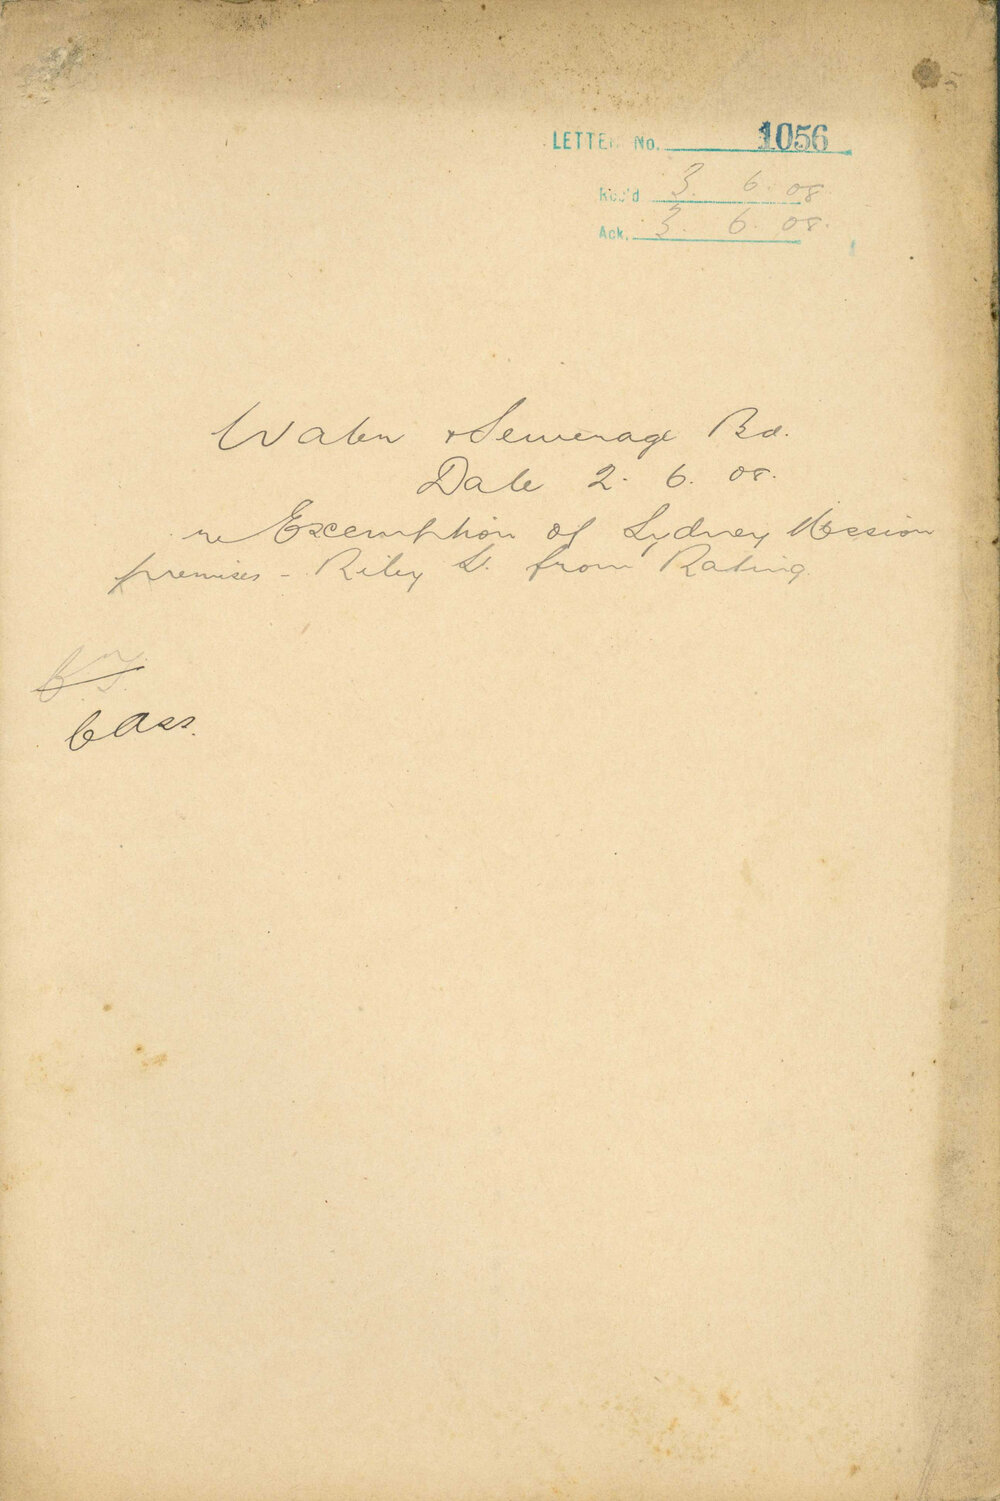 LETTER No. 1056
Rec'd 3. 6. 08
Ack. 3. 6. 08.
Water & Sewerage Bd.
Date 2. 6. 08.
re Excemption of Sydney Mission
premises - Riley St. from Rating.
C Ass.